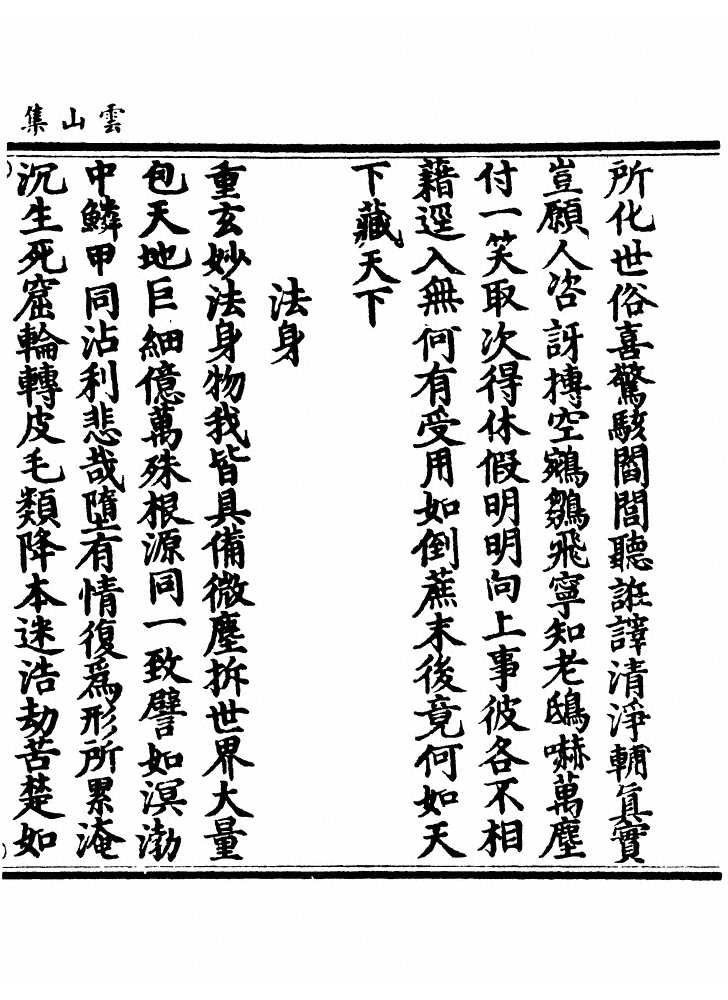 雲山集
所化世俗喜驚駭閻閭聽誑譯清淨輔眞實
豈願人咨訝摶空鵷鶵飛寧知老鴟嚇萬塵
付一笑取次得休假明明向上事彼各不相
藉逕入無何有受用如倒蔗末後竟何如天
下藏天下
法身
重玄妙法身物我皆具備微塵拆世界大量
包天地巨細億萬殊根源同一致譬如溟渤
中鱗甲同沾利悲哉墮有情復爲形所累淹
沉生死窟輪轉皮毛類降本迷浩劫苦楚如